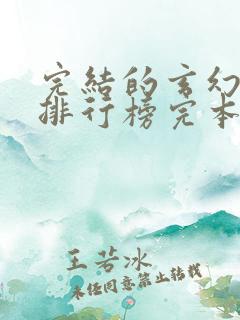 完结的玄幻
排行榜完本
王若冰
未经同意禁止转载